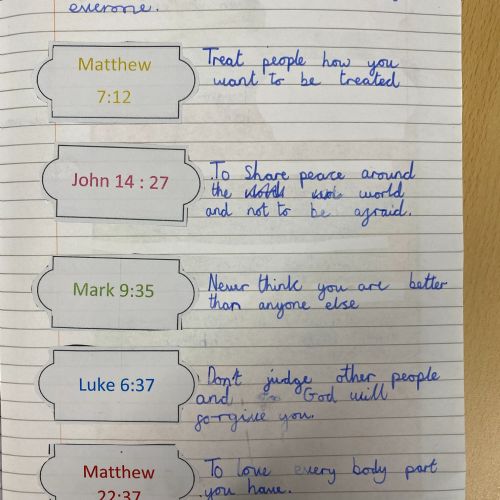 everyone.
Matthew
7:12
Treat people how you
want to be treated
John 14 : 27
To share peace around
the world
and not to be afraid.
Mark 9:35
Never think you are better
than anyone else
Luke 6:37
Don't judge other people
and God will
forgive you.
Matthew
22:37
To love every body part
you have.